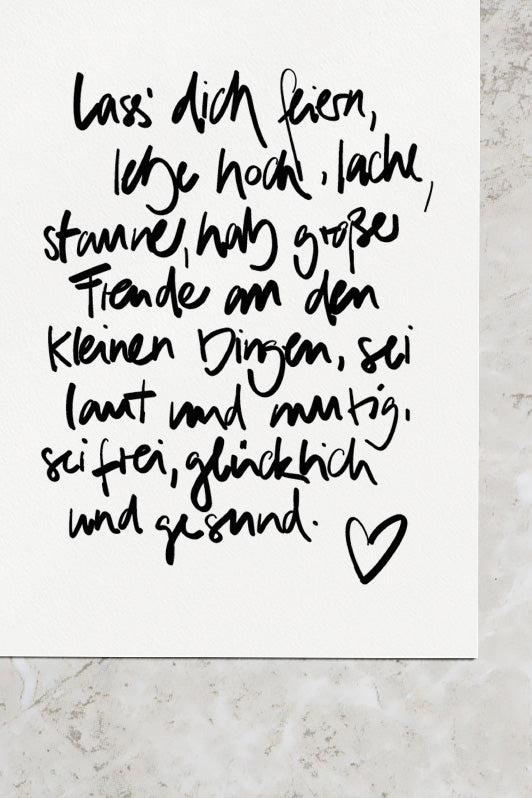 Lass' dich feiern,
lebe hoch, lache,
staune, hab große
Freude an den
kleinen Dingen, sei
laut und mutig.
sei frei, glücklich
und gesund.